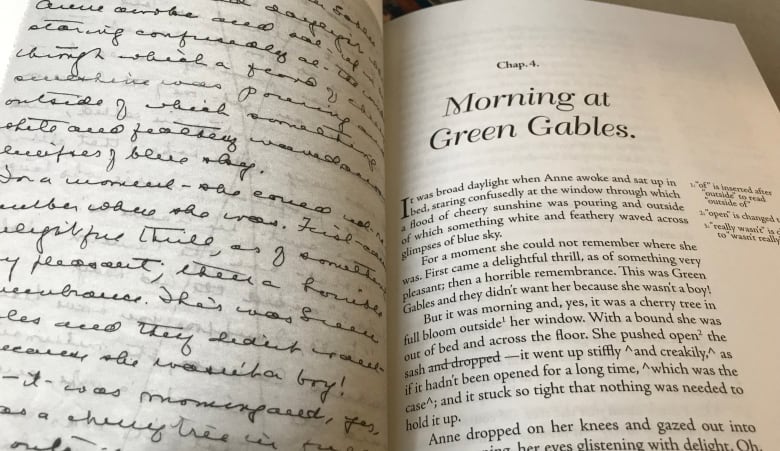 daylight
Anne awoke and sat up in
staring confusedly at the
through which a flood of
sunshine was pouring
outside of which something
white and feathery waved
glimpses of blue sky.
For a moment she could not
where she was. First
delightful thrill, as of
pleasant; then a horrible
This was Green
and they didn't want
because she wasn't a boy!
it was morning and, yes,
a cherry tree in
Chap. 4.
Morning at
Green Gables.
It was broad daylight when Anne awoke and sat up in
bed, staring confusedly at the window through which
a flood of cheery sunshine was pouring and outside
of which something white and feathery waved across
glimpses of blue sky.
For a moment she could not remember where she
was. First came a delightful thrill, as of something very
pleasant; then a horrible remembrance. This was Green
Gables and they didn't want her because she wasn't a boy!
But it was morning and, yes, it was a cherry tree in
full bloom outside¹ her window. With a bound she was
out of bed and across the floor. She pushed open² the
sash and dropped —it went up stiffly ^and creakily,^ as
if it hadn't been opened for a long time, ^which was the
case^; and it stuck so tight that nothing was needed to
hold it up.
Anne dropped on her knees and gazed out into
her eyes glistening with delight. Oh,
1: "of" is inserted after
"outside" to read
"outside of"
2: "open" is changed
3: "really wasn't" is
to "wasn't really